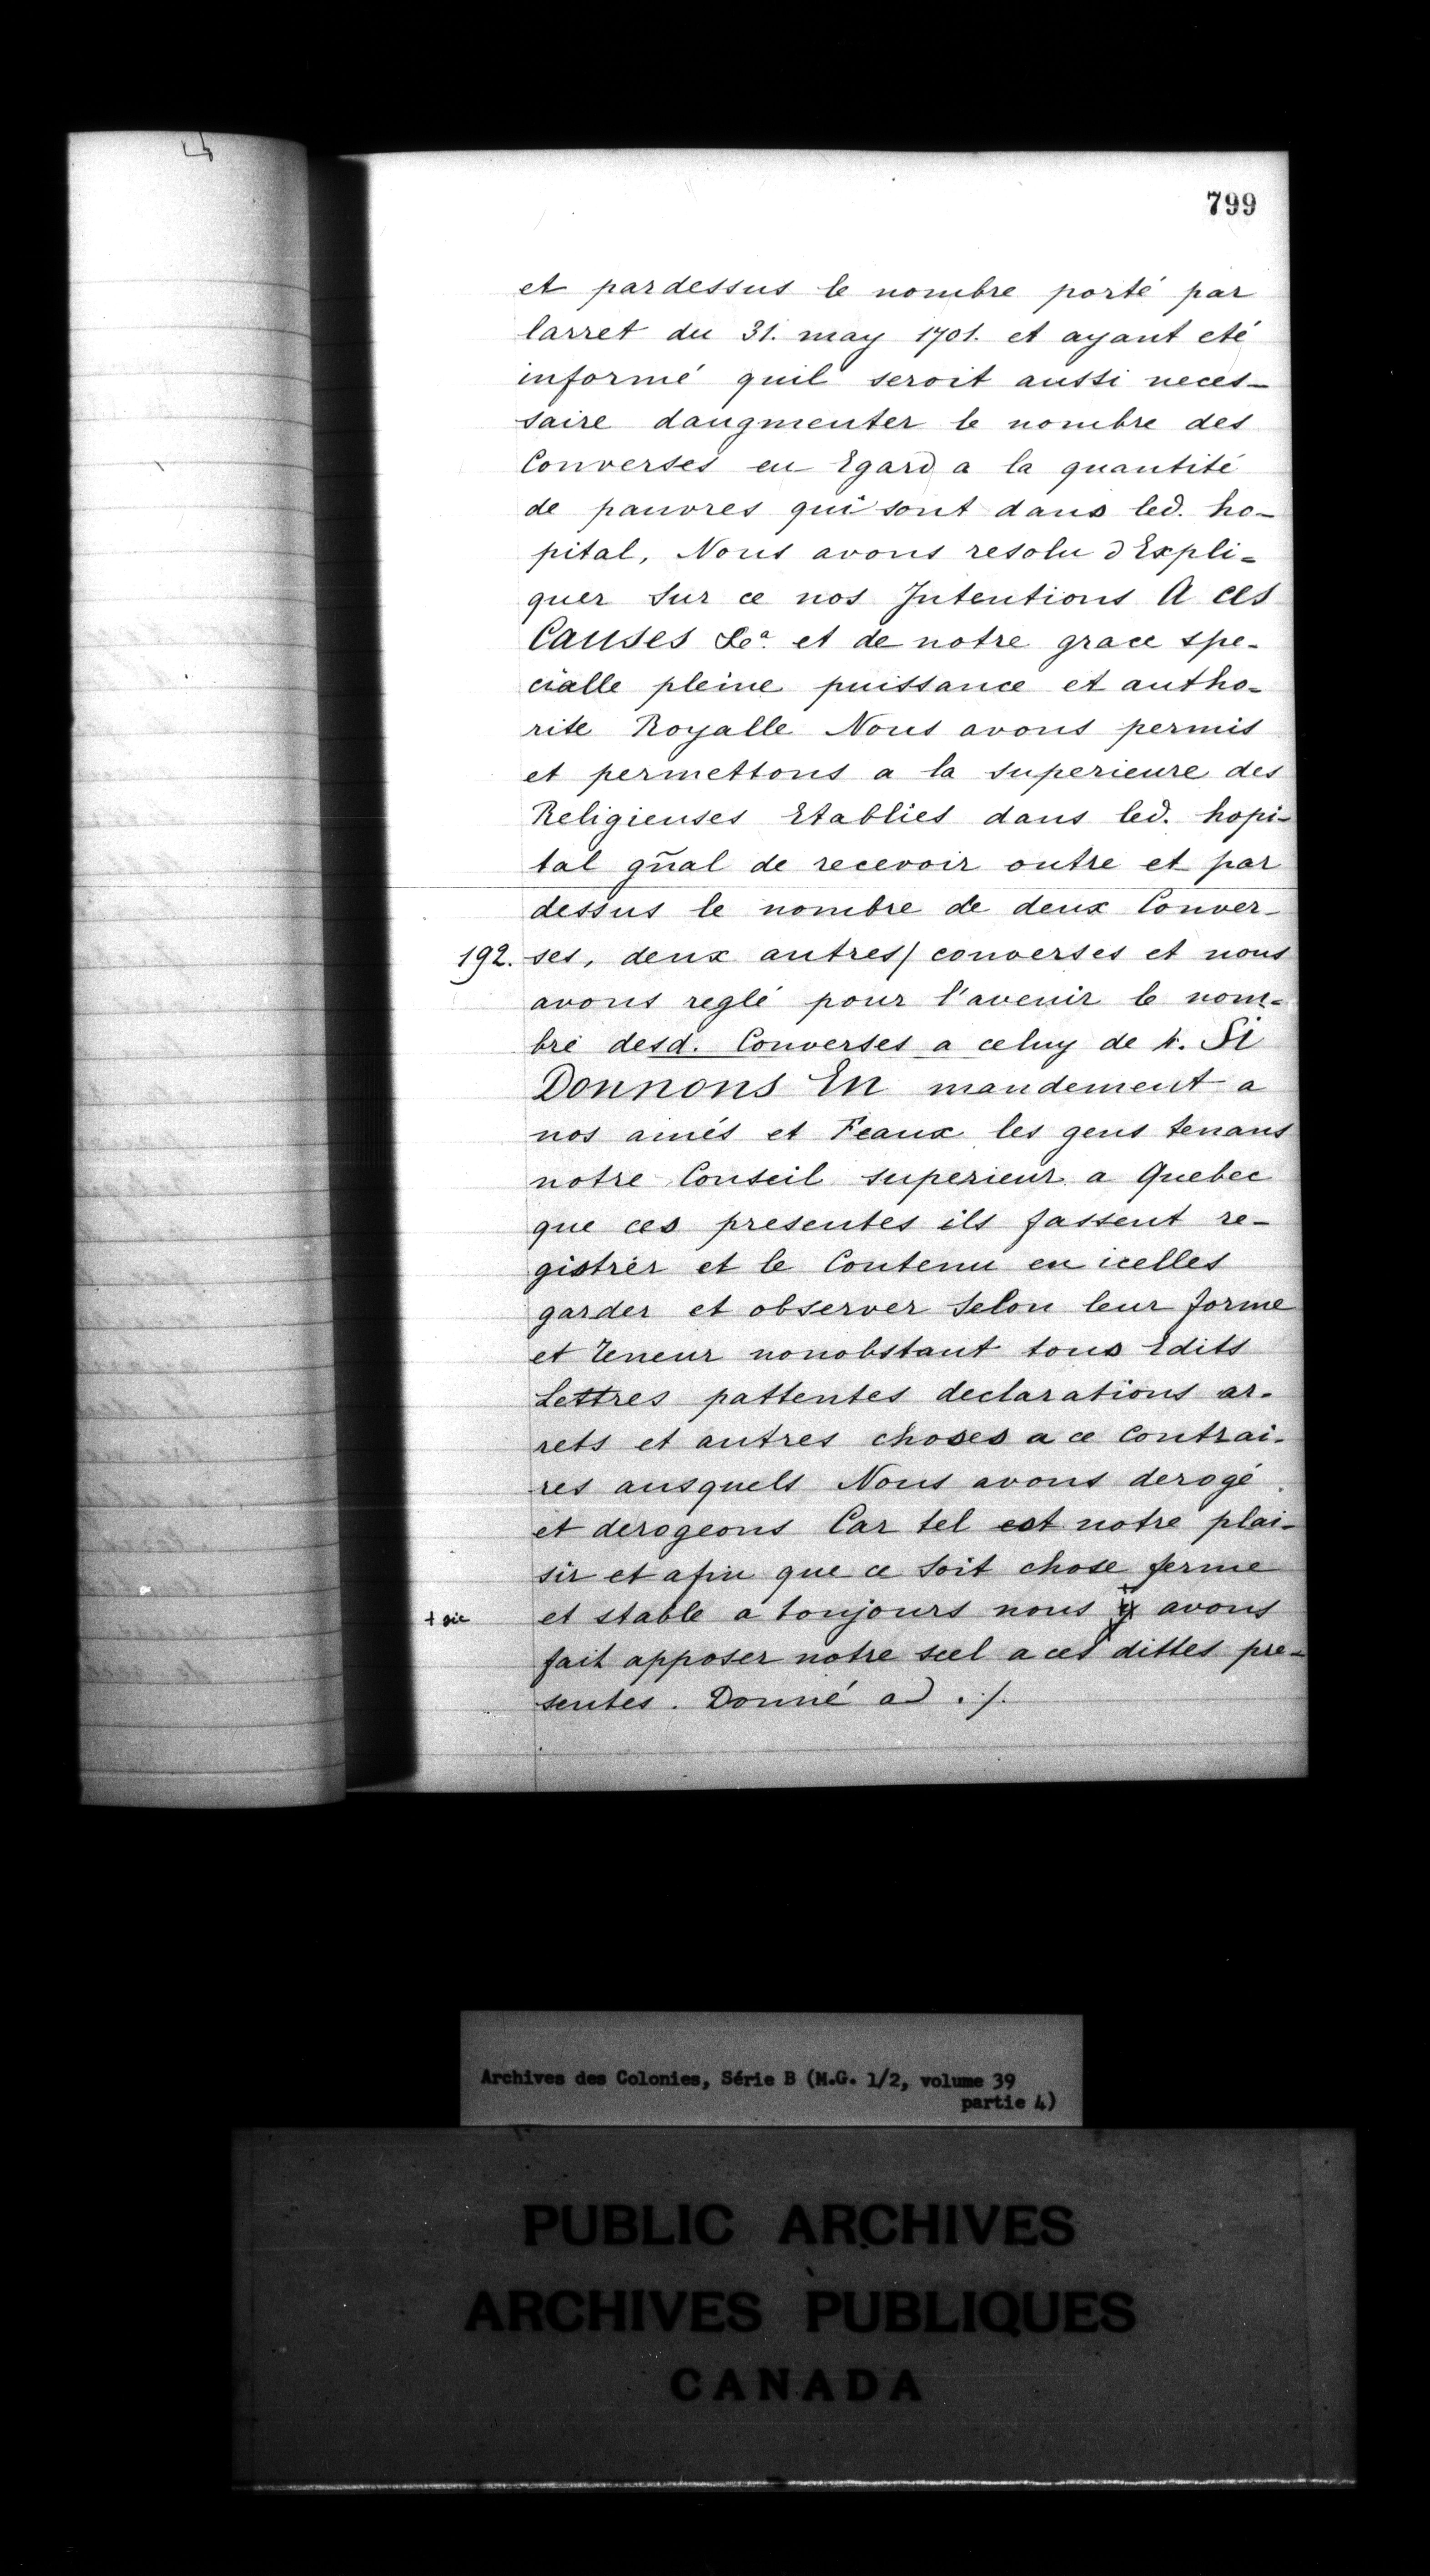 799
et pardessus le nombre porté par
larret du 31. may 1701. et ayant eté
informé quil seroit aussi neces-
saire daugmenter le nombre des
Converses eu Egard a la quantité
de pauvres qui sont dans led. ho-
pital, Nous avons resolu d Expli-
quer Sur ce nos Intentions A ces
Causes &ca. et de notre grace spe-
cialle pleine puissance et autho-
rite Royalle Nous avons permis
et permettons a la superieure des
Religieuses Etablies dans led. hopi-
tal gñal de recevoir outre et par
dessus le nombre de deux Conver-
192. ses, deux autres/ converses et nous
avons reglé pour l'avenir le nom-
bre desd. Converses a celuy de 4. Si
Donnons En mandement a
nos amés et Feaux les gens tenans
notre Conseil superieur a Quebec
que ces presentes ils fassent re-
gistrer et le Contenu en icelles
garder et observer Selon leur forme
et Teneur nonobstant tous Edits
Lettres pattentes declarations ar-
rets et autres choses a ce Contrai-
res ausquels Nous avons derogé
et derogeons Car tel est notre plai-
sir et afin que ce Soit chose ferme
+ sic et stable a toujours nous + y avons
fait apposer notre scel a ces dittes pre-
sentes. Donné a ./.
Archives des Colonies, Série B (M.G. 1/2, volume 39
partie 4)
PUBLIC ARCHIVES
ARCHIVES PUBLIQUES
CANADA